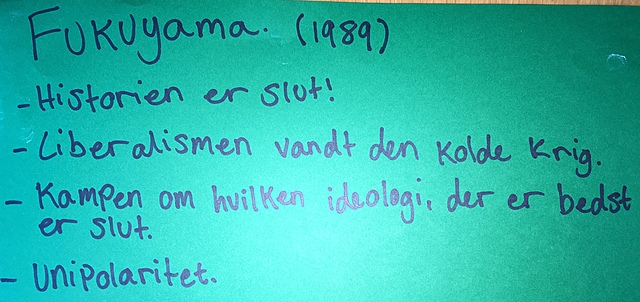 Fukuyama. (1989)
- Historien er slut!
- Liberalismen vandt den kolde krig.
- Kampen om hvilken ideologi, der er bedst
er slut.
- Unipolaritet.